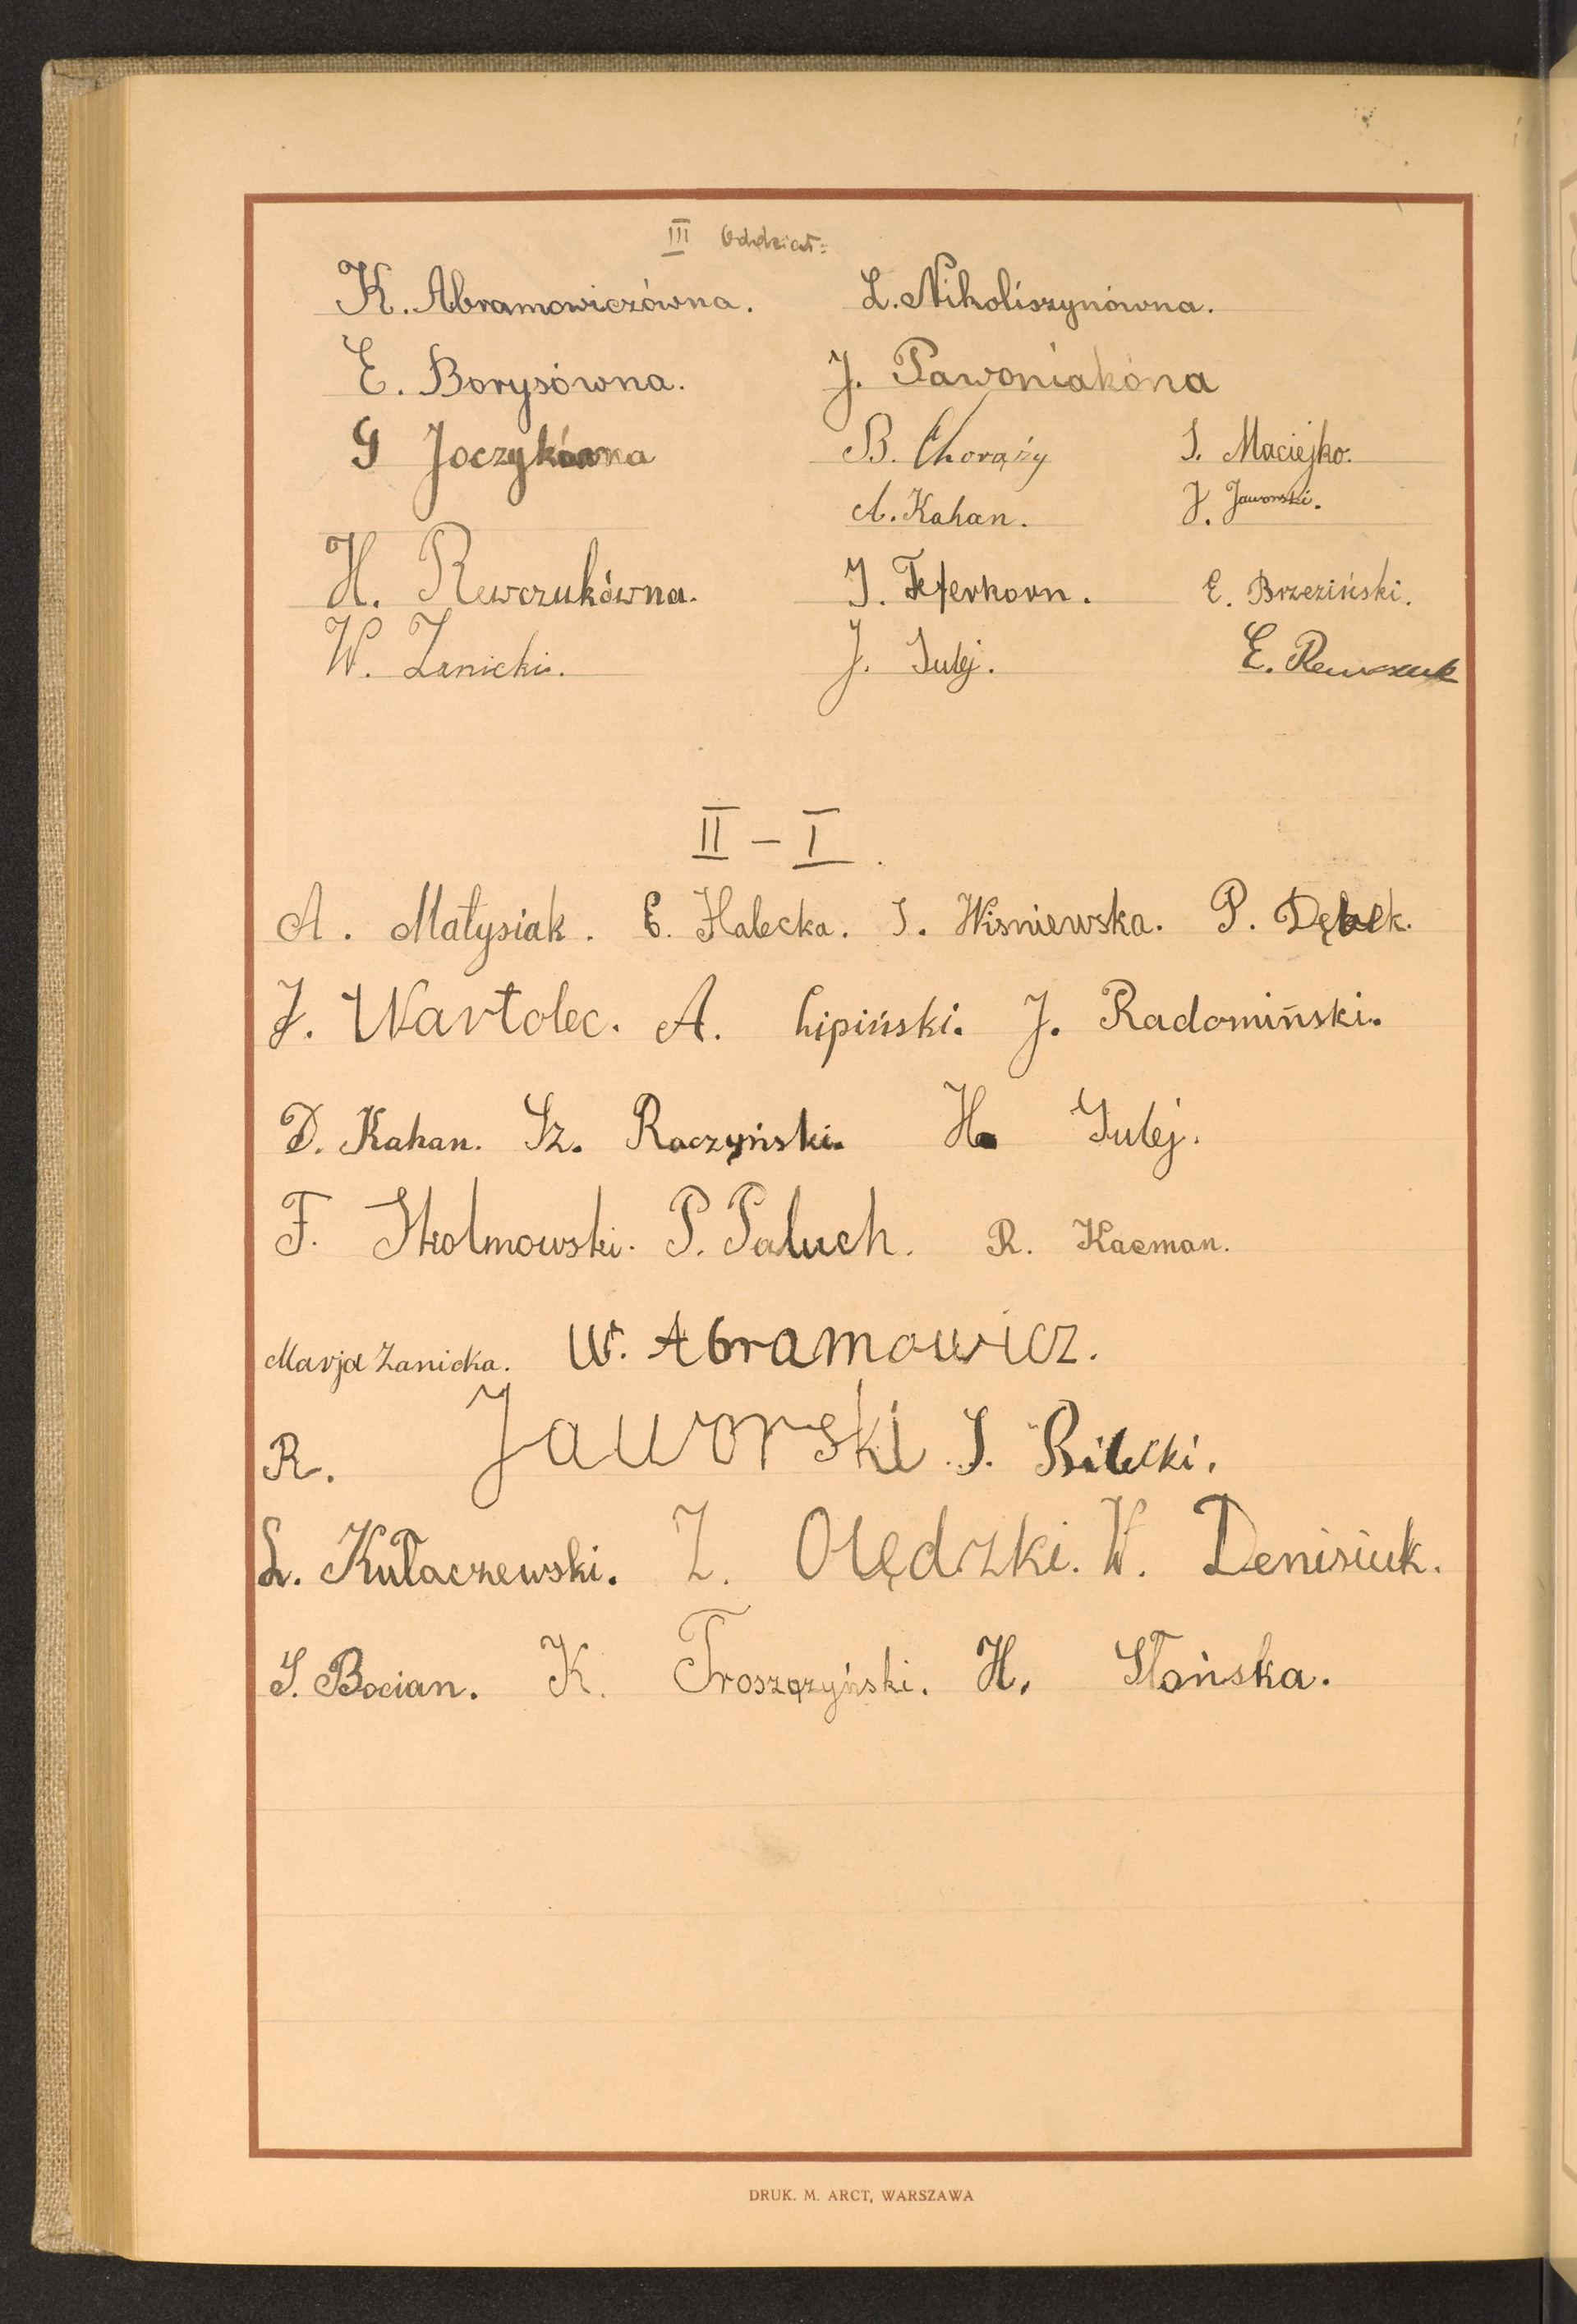 III Oddział:
K. Abramowiczówna. L. Nikoliszynówna.
E. Borysówna. J. Pawoniakóna
G Joczykówna B. Chorąży S. Maciejko.
A. Kahan. J. Jaworski.
H. Rewczukówna. J. Feferkorn. E. Brzeziński.
W. Zanicki. J. Sulej. E. Rewczuk
II – I.
A. Małysiak. E. Halecka. S. Wisniewska. P. Dębek.
J. Wartolec. A. Lipiński. J. Radomiński.
D. Kahan. Sz. Raczyński. H. Sulej.
F. Skolmowski. P. Paluch. R. Kacman.
Marja Zanicka. W. Abramowicz.
R. Jaworski. S. Bilecki.
L. Kułaczewski. Z. Olędzki. W. Denisiuk.
S. Bocian. K. Troszczyński. H. Słońska.
DRUK. M. ARCT, WARSZAWA